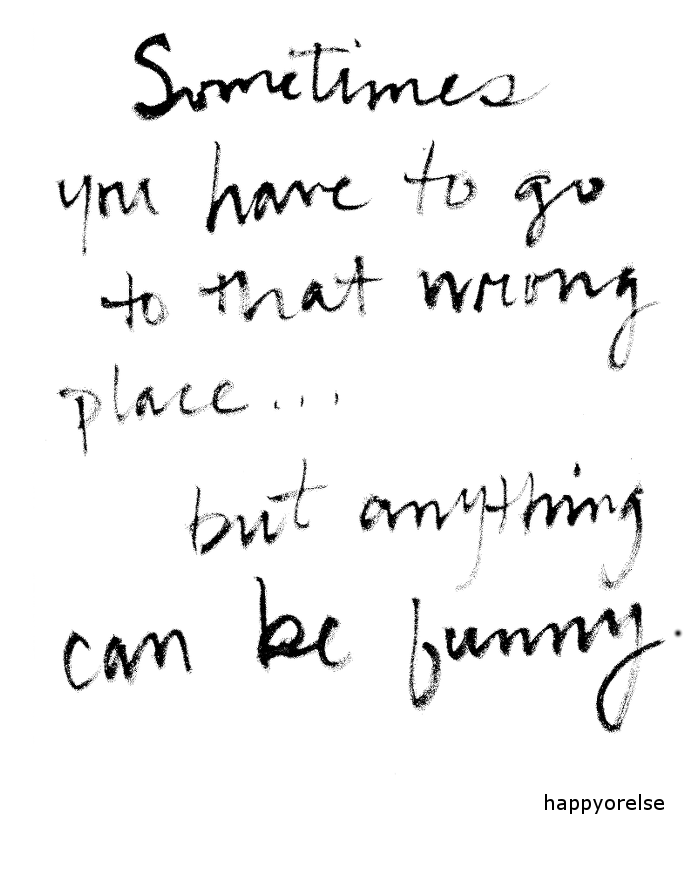 Sometimes
you have to go
to that wrong
place...
but anything
can be funny.
happyorelse